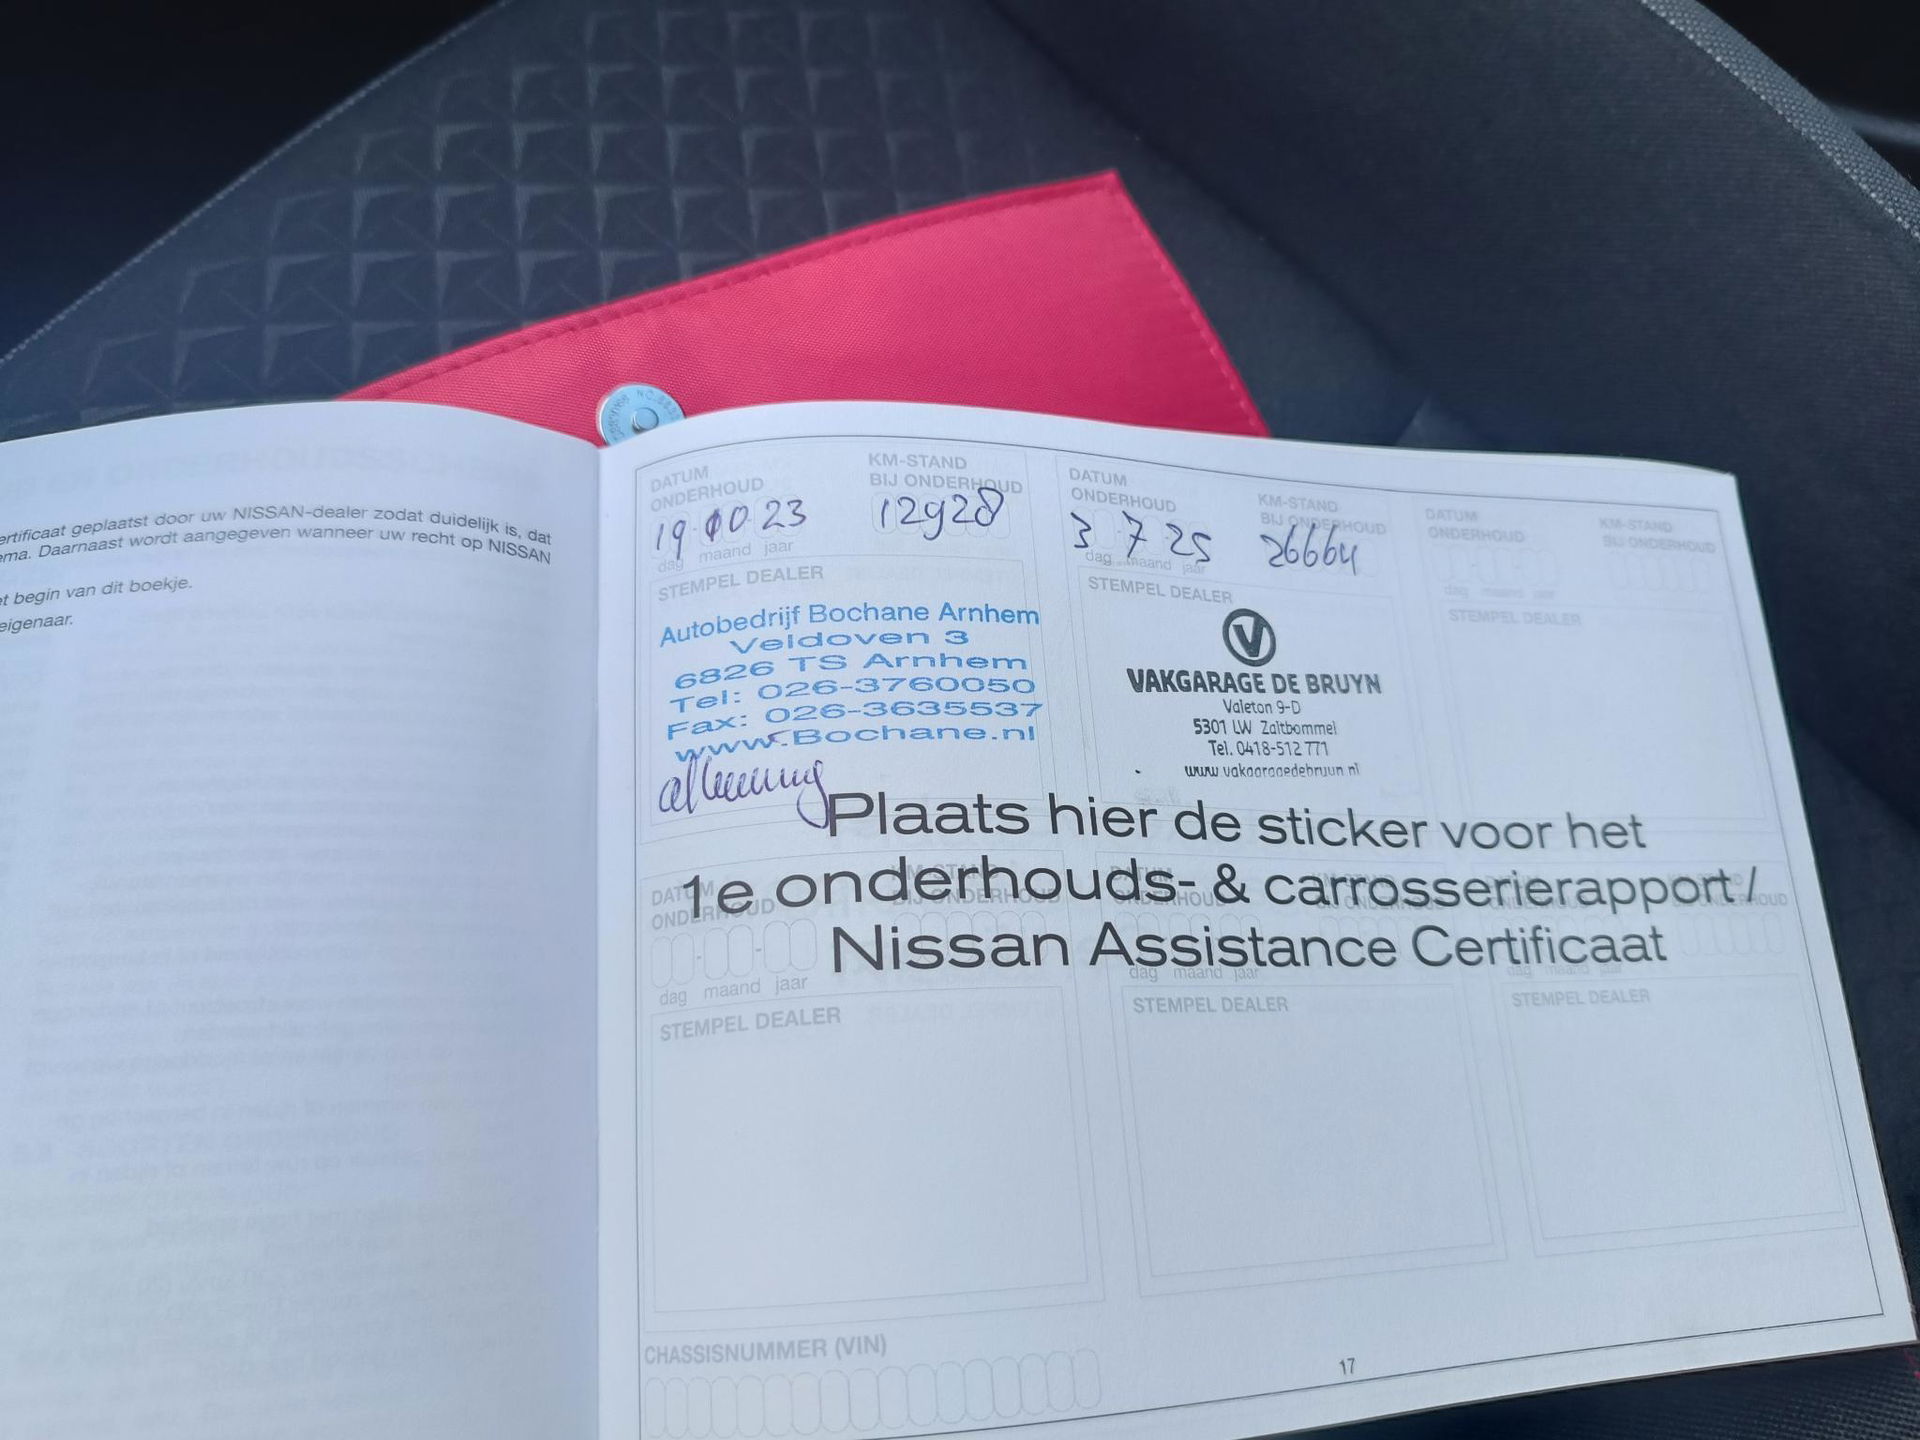 ertificaat geplaatst door uw NISSAN-dealer zodat duidelijk is, dat
ema. Daarnaast wordt aangegeven wanneer uw recht op NISSAN
et begin van dit boekje.
eigenaar.
DATUM ONDERHOUD
KM-STAND BIJ ONDERHOUD
19 10 23
12928
dag maand jaar
STEMPEL DEALER
Autobedrijf Bochane Arnhem
Veldoven 3
6826 TS Arnhem
Tel: 026-3760050
Fax: 026-3635537
www.Bochane.nl
DATUM ONDERHOUD
KM-STAND BIJ ONDERHOUD
3 7 25
26664
dag maand jaar
STEMPEL DEALER
VAKGARAGE DE BRUYN
Valeton 9-D
5301 LW Zaltbommel
Tel. 0418-512 771
www.vakgaragedebruyn.nl
DATUM ONDERHOUD
KM-STAND BIJ ONDERHOUD
dag maand jaar
STEMPEL DEALER
Plaats hier de sticker voor het
1e onderhouds- & carrosserierapport /
Nissan Assistance Certificaat
DATUM ONDERHOUD
KM-STAND BIJ ONDERHOUD
dag maand jaar
STEMPEL DEALER
DATUM ONDERHOUD
dag maand jaar
STEMPEL DEALER
dag maand jaar
STEMPEL DEALER
CHASSISNUMMER (VIN)
17